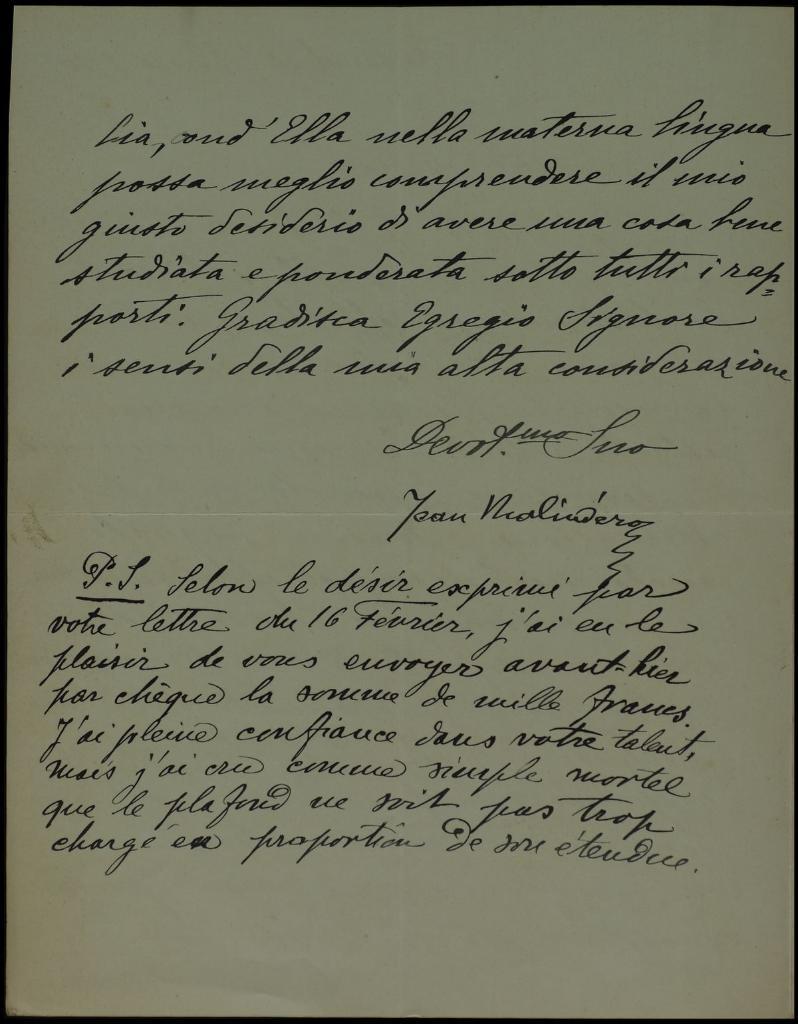 lia, ond' Ella nella materna lingua
possa meglio comprendere il mio
giusto desiderio di avere una cosa bene
studiata e ponderata sotto tutti i rap=
porti. Gradisca Egregio Signore
i sensi della mia alta considerazione
Devot.mo Suo
Jean
P.S. Selon le désir exprimé par
votre lettre du 16 Février, j'ai eu le
plaisir de vous envoyer avant-hier
par chèque la somme de mille francs.
J'ai pleine confiance dans votre talent,
mais j'ai cru comme simple mortel
que le plafond ne soit pas trop
chargé en proportion de son étendue.